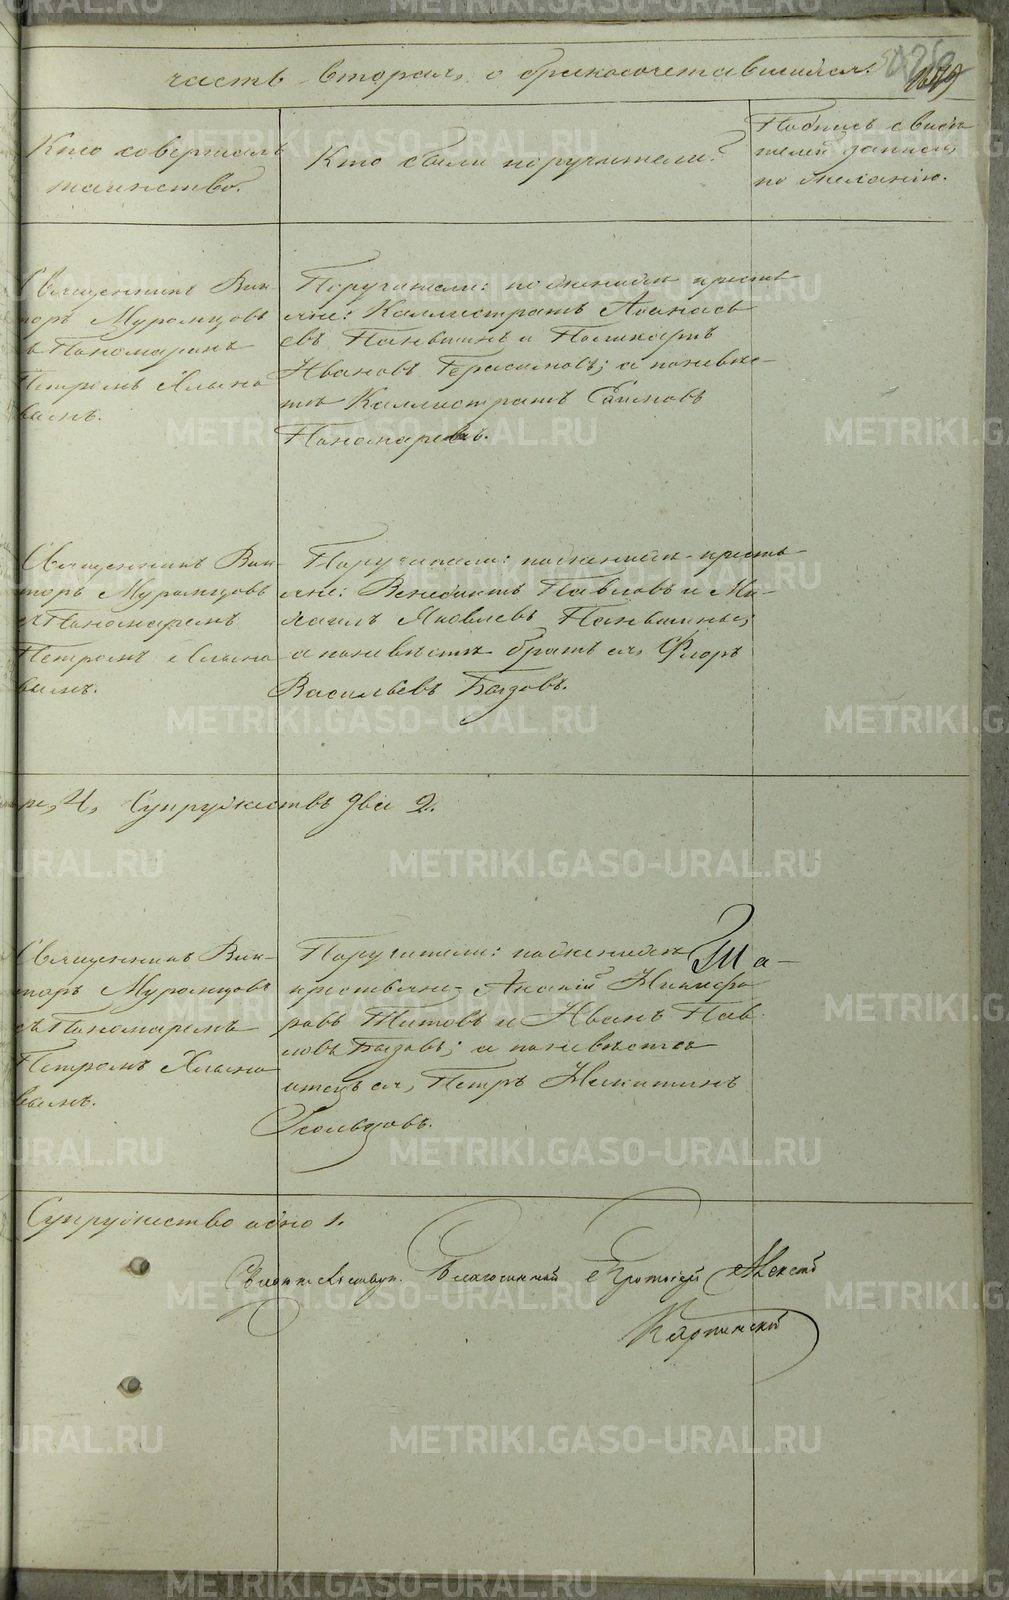 часть вторая, о бракосочетавшихся.
Кто совершалъ
таинство.
Кто были поручители?
Подпись свидѣ
телей записи
по желанію.
Священникъ Вик-
торъ Муромцовъ
съ Пономаремъ
Петромъ Хлыно
вымъ.
Поручители: по женихѣ кресть
яне: Каллистратъ Аѳанась
евъ Паньшинъ и Поликарпъ
Ивановъ Герасимовъ; а по невѣс-
тѣ Каллистратъ Ефимовъ
Пономаревъ.
Священникъ Вик-
торъ Муромцовъ
съ Пономаремъ
Петромъ Хлыно
вымъ.
Поручители: по женихѣ кресть
яне: Венедиктъ Павловъ и Ми-
хаилъ Яковлевъ Паньшины,
а по невѣстѣ братъ ея, Флоръ
Васильевъ Быздовъ.
ре, 4, Супружествъ два 2.
Священникъ Вик-
торъ Муромцовъ
съ Пономаремъ
Петромъ Хлыно
вымъ.
Поручители: по женихѣ
крестьяне, Ананій Никифо
ровъ Титовъ и Иванъ Пав
ловъ; а по невѣстѣ
отецъ ея, Петръ Никитинъ
Супружество одно 1.
Благочинный Протоіерей
METRIKI.GASO-URAL.RU